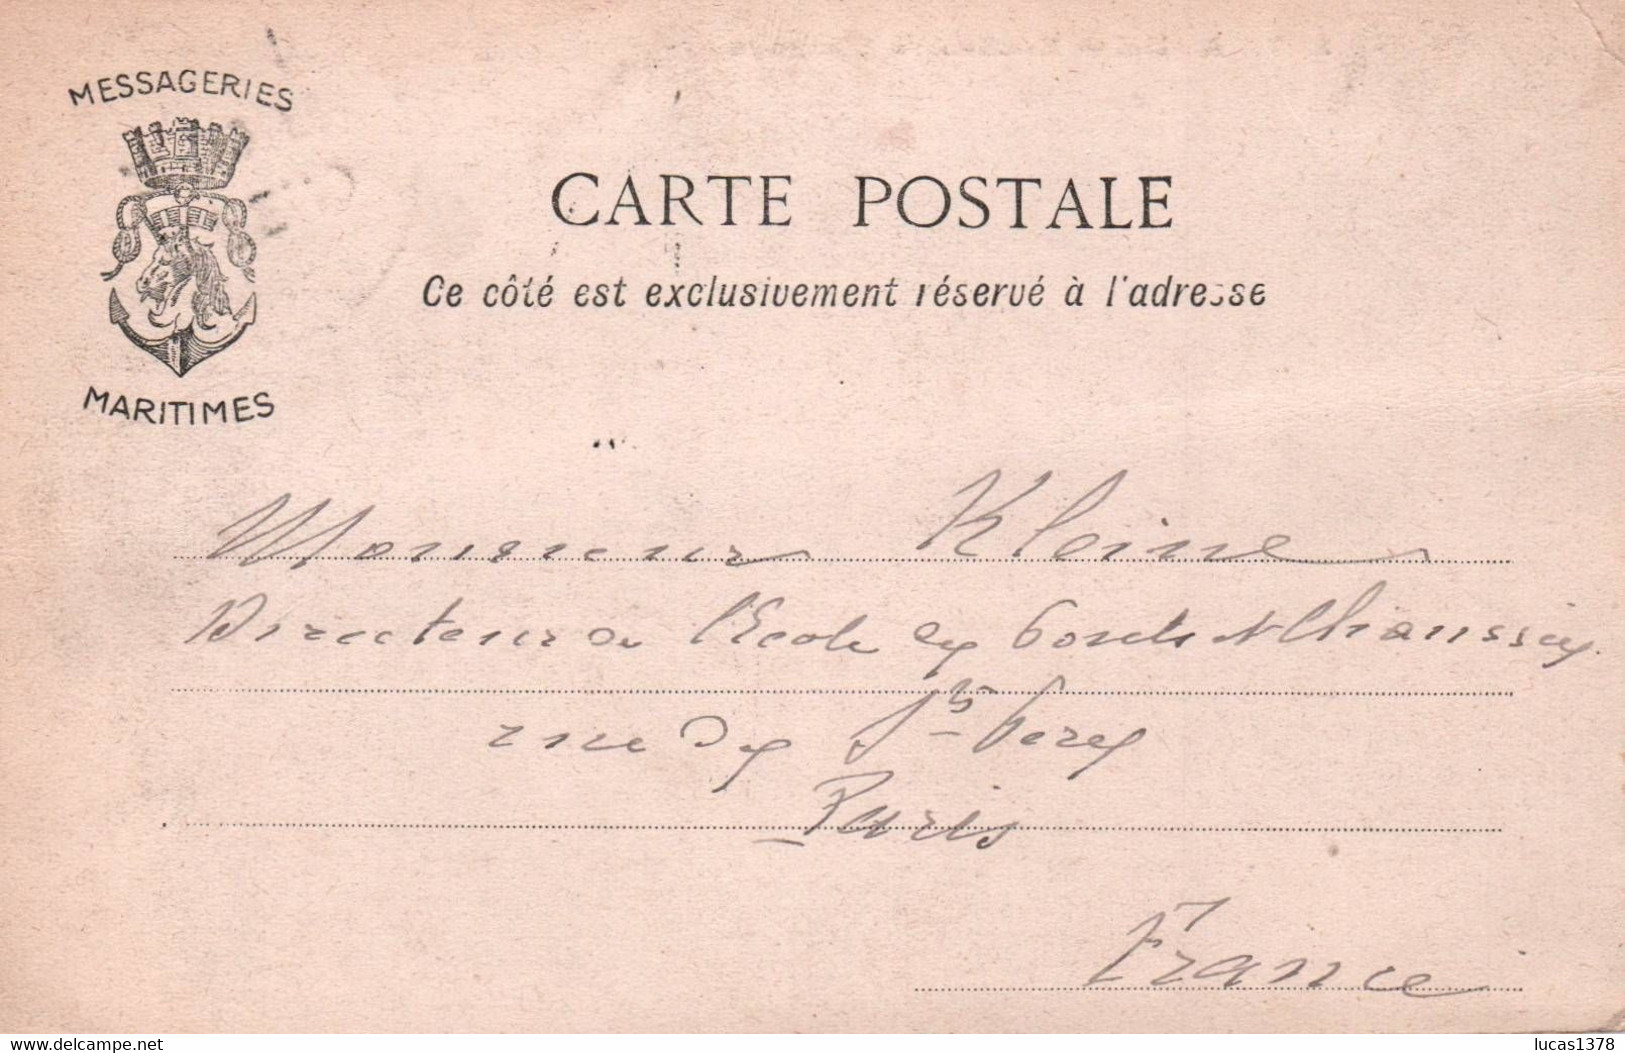 MESSAGERIES
MARITIMES
CARTE POSTALE
Ce côté est exclusivement réservé à l'adresse
Monsieur Kleine
Directeur de l'Ecole des Ponts et Chaussées
rue des Sts Peres
Paris
France
www.delcampe.net
lucas1378